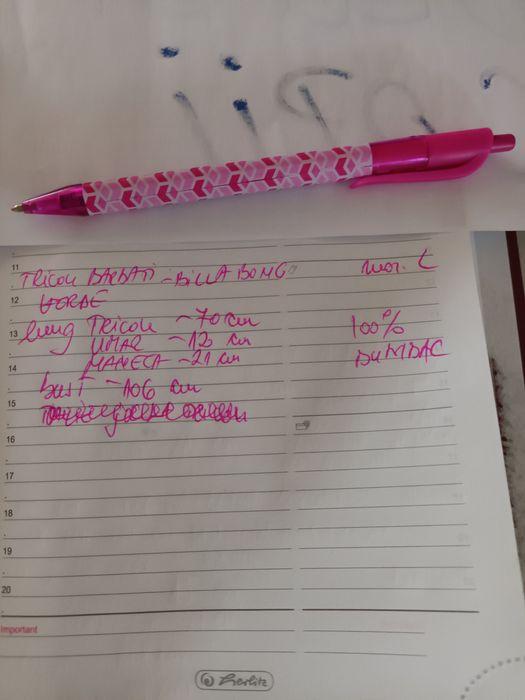 11
TRICOU BARBATI - BILLABONG mar. L
12
VERDE
13
lung TRICOU ~ 70 cm 100%
UMAR ~ 12 cm
14
MANECA ~ 21 cm BUMBAC
bust ~ 106 cm
15
16
17
18
19
20
important
herlitz